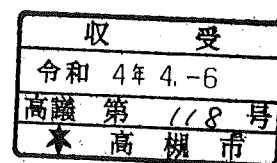 収 受
令和 4年 4.-6
高議 第 118 号
★ 高 槻 市